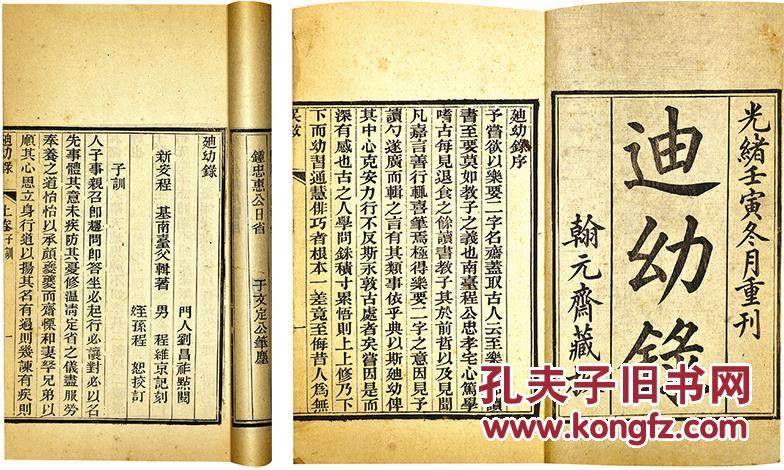 光緒壬寅冬月重刊
迪幼錄
翰元齋藏
廸幼錄序
予嘗欲以樂要二字名齋蓋取古人云至樂莫如讀
書至要莫如教子之義也南臺程公忠孝宅心篤學
嗜古每見退食之餘讀書教子其於前哲以及見聞
凡嘉言善行輒喜筆焉極得樂要二字之意因見子
讀勺遂廣而輯之言有其類事依乎典以斯廸幼俾
其中心克安力行不反斯永敦古處者矣嘗因是而
深有感也古之人學問銖積寸累悟則上上修乃下
下而幼書通慧俳巧者根本一差竟至侮昔人為無
鍾忠惠公日省 于文定公筆麈
廸幼錄
門人劉昌祚點閱
新安程 基南臺父輯著 男 程維京記刻
姪孫程 恕挍訂
子訓
人子事親召即趨問即答坐必起行必讓對必以名
先事體其意未疾防其憂修溫凊定省之儀盡服勞
奉養之道怡怡以承顔夔夔而齋慄和妻孥兄弟以
順其心思立身行道以揚其名有過則幾諫有疾則
廸幼錄 上卷 子訓
孔夫子旧书网
www.kongfz.com